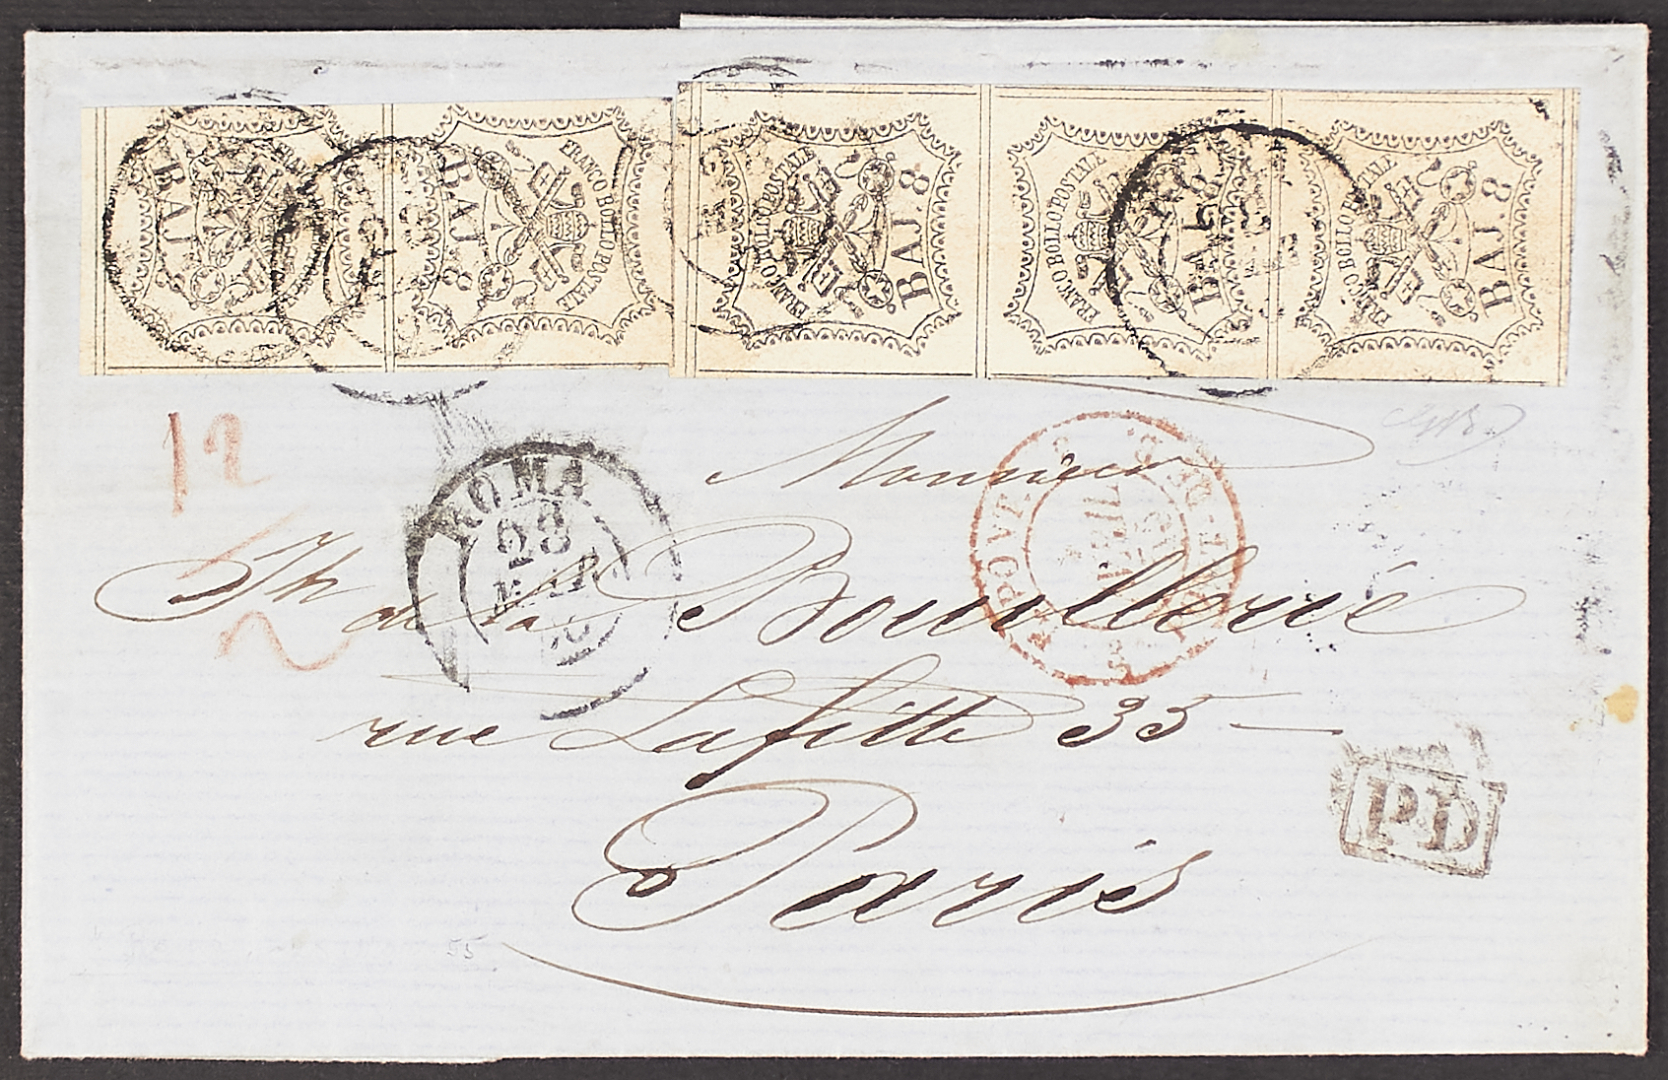 FRANCO BOLLO POSTALE
BAJ. 8
FRANCO BOLLO POSTALE
BAJ. 8
FRANCO BOLLO POSTALE
BAJ. 8
FRANCO BOLLO POSTALE
BAJ. 8
FRANCO BOLLO POSTALE
BAJ. 8
12
2
ROMA
23
MAR
Monsieur
Th de la Bouillerie
rue Lafitte 35
Paris
P.D
55